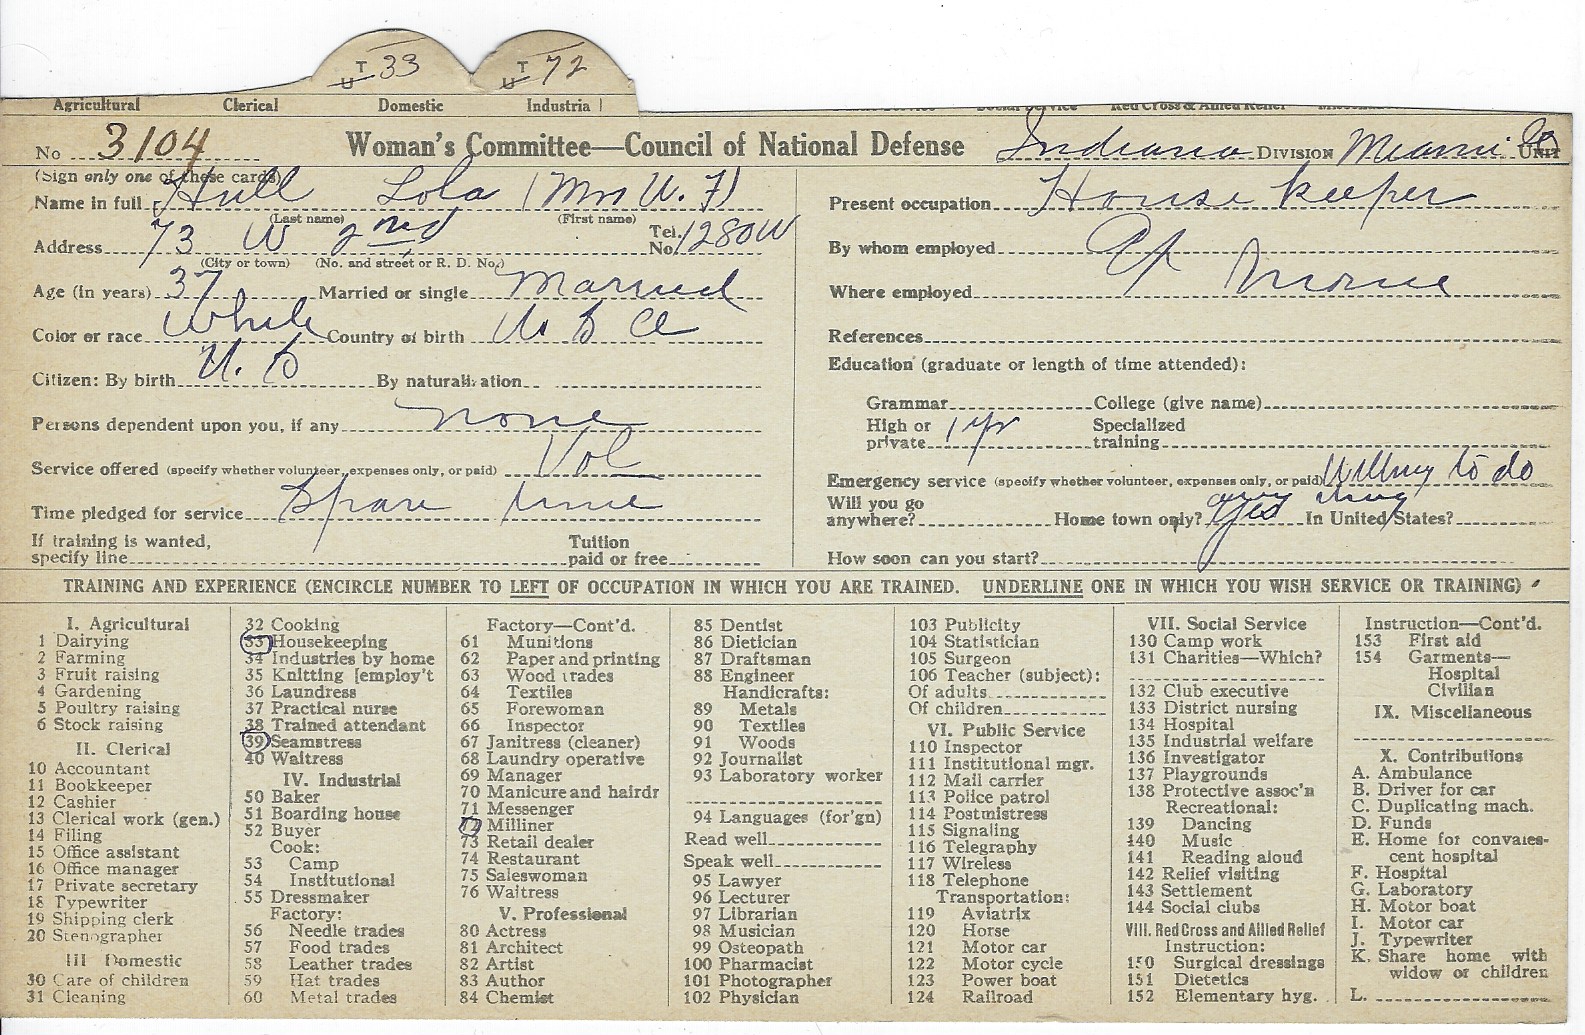 T 33 U
T 72 U
Agricultural Clerical Domestic Industrial
No 3104 Woman's Committee—Council of National Defense Indiana DIVISION Miami Co UNIT
(Sign only one of these cards)
Name in full Hull Lola (Mrs W. F)
(Last name) (First name)
Address 73 W 2nd Tel. No. 1280W
(City or town) (No. and street or R. D. No.)
Age (in years) 37 Married or single Married
Color or race White Country of birth U S A
Citizen: By birth U. S By naturalization
Persons dependent upon you, if any none
Service offered (specify whether volunteer, expenses only, or paid) Vol
Time pledged for service Spare time
If training is wanted, specify line Tuition paid or free
Present occupation House keeper
By whom employed At
Where employed Home
References
Education (graduate or length of time attended):
Grammar College (give name)
High or private 1 yr Specialized training
Emergency service (specify whether volunteer, expenses only, or paid) Willing to do any thing
Will you go anywhere? Home town only? yes In United States?
How soon can you start?
TRAINING AND EXPERIENCE (ENCIRCLE NUMBER TO LEFT OF OCCUPATION IN WHICH YOU ARE TRAINED. UNDERLINE ONE IN WHICH YOU WISH SERVICE OR TRAINING)
I. Agricultural
1 Dairying
2 Farming
3 Fruit raising
4 Gardening
5 Poultry raising
6 Stock raising
II. Clerical
10 Accountant
11 Bookkeeper
12 Cashier
13 Clerical work (gen.)
14 Filing
15 Office assistant
16 Office manager
17 Private secretary
18 Typewriter
19 Shipping clerk
20 Stenographer
III Domestic
30 Care of children
31 Cleaning
32 Cooking
33 Housekeeping
34 Industries by home
35 Knitting [employ't
36 Laundress
37 Practical nurse
38 Trained attendant
39 Seamstress
40 Waitress
IV. Industrial
50 Baker
51 Boarding house
52 Buyer
Cook:
53 Camp
54 Institutional
55 Dressmaker
Factory:
56 Needle trades
57 Food trades
58 Leather trades
59 Hat trades
60 Metal trades
Factory—Cont'd.
61 Munitions
62 Paper and printing
63 Wood trades
64 Textiles
65 Forewoman
66 Inspector
67 Janitress (cleaner)
68 Laundry operative
69 Manager
70 Manicure and hairdr
71 Messenger
72 Milliner
73 Retail dealer
74 Restaurant
75 Saleswoman
76 Waitress
V. Professional
80 Actress
81 Architect
82 Artist
83 Author
84 Chemist
85 Dentist
86 Dietician
87 Draftsman
88 Engineer
Handicrafts:
89 Metals
90 Textiles
91 Woods
92 Journalist
93 Laboratory worker
94 Languages (for'gn)
Read well
Speak well
95 Lawyer
96 Lecturer
97 Librarian
98 Musician
99 Osteopath
100 Pharmacist
101 Photographer
102 Physician
103 Publicity
104 Statistician
105 Surgeon
106 Teacher (subject):
Of adults
Of children
VI. Public Service
110 Inspector
111 Institutional mgr.
112 Mail carrier
113 Police patrol
114 Postmistress
115 Signaling
116 Telegraphy
117 Wireless
118 Telephone
Transportation:
119 Aviatrix
120 Horse
121 Motor car
122 Motor cycle
123 Power boat
124 Railroad
VII. Social Service
130 Camp work
131 Charities—Which?
132 Club executive
133 District nursing
134 Hospital
135 Industrial welfare
136 Investigator
137 Playgrounds
138 Protective assoc'n
Recreational:
139 Dancing
140 Music
141 Reading aloud
142 Relief visiting
143 Settlement
144 Social clubs
VIII. Red Cross and Allied Relief
Instruction:
150 Surgical dressings
151 Dietetics
152 Elementary hyg.
Instruction—Cont'd.
153 First aid
154 Garments—
Hospital
Civilian
IX. Miscellaneous
X. Contributions
A. Ambulance
B. Driver for car
C. Duplicating mach.
D. Funds
E. Home for convales-
cent hospital
F. Hospital
G. Laboratory
H. Motor boat
I. Motor car
J. Typewriter
K. Share home with
widow or children
L.